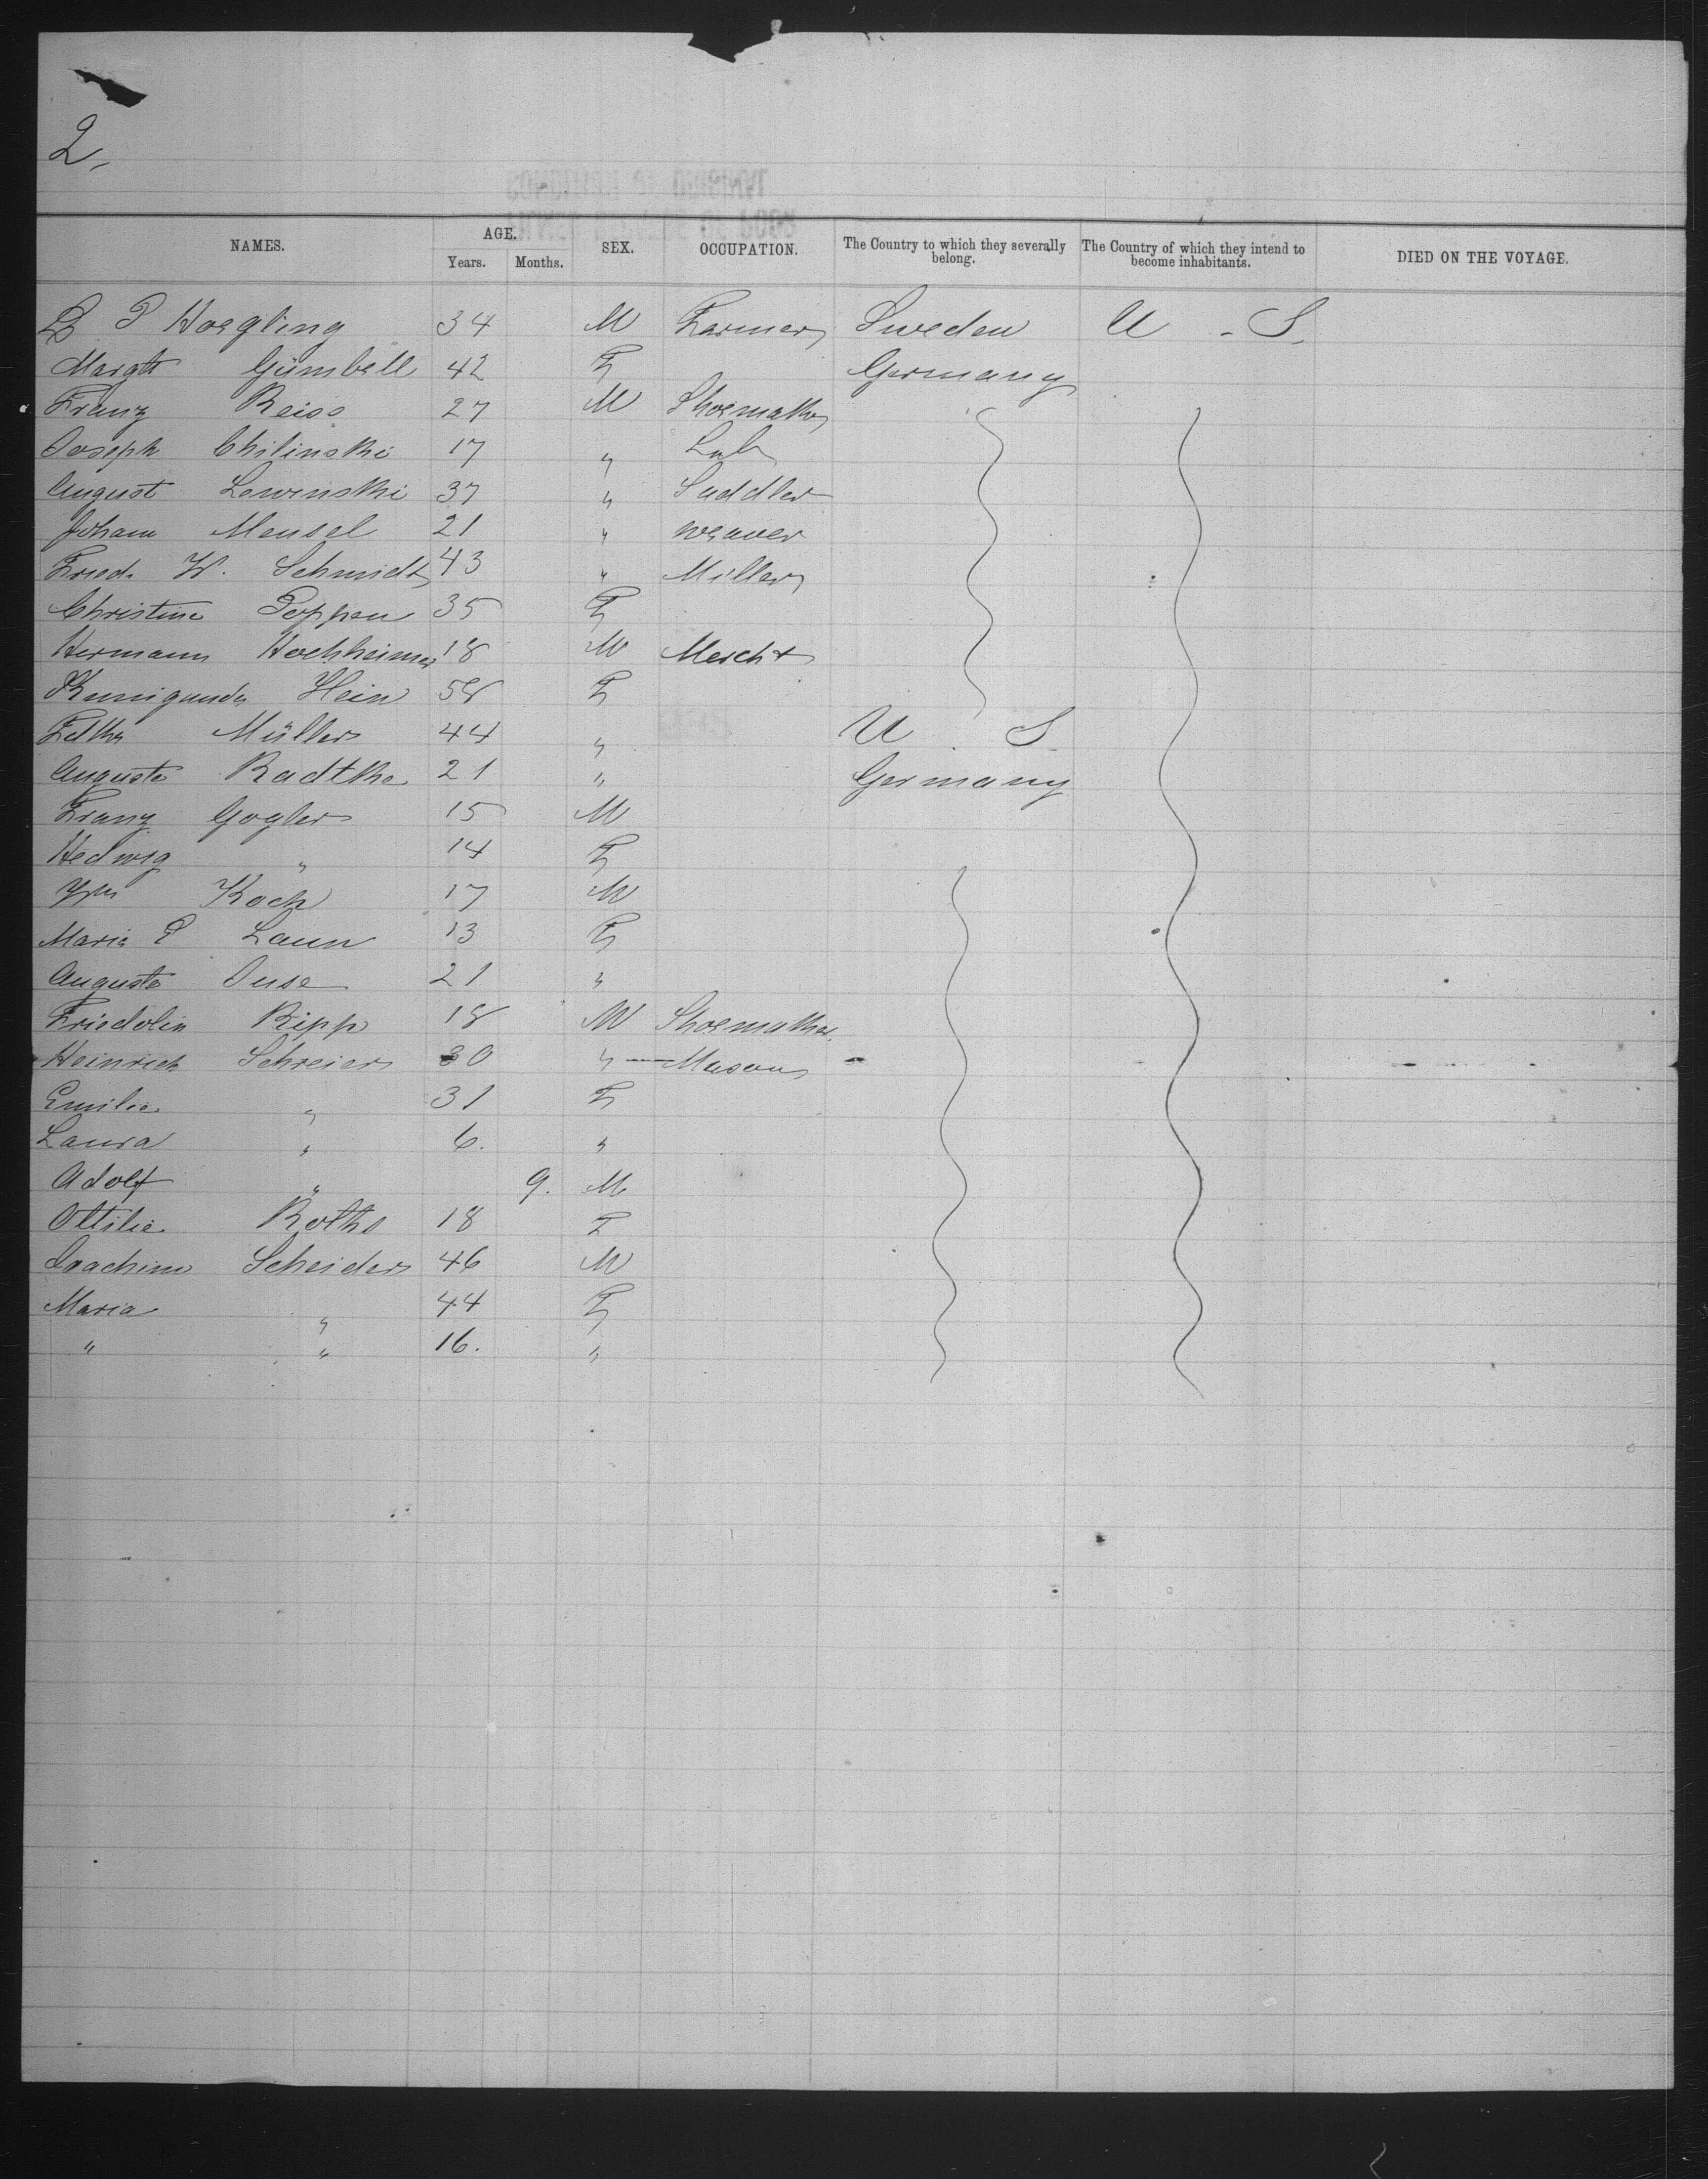 2,
NAMES. AGE. Years. Months. SEX. OCCUPATION. The Country to which they severally belong. The Country of which they intend to become inhabitants. DIED ON THE VOYAGE.
P Hoegling 34 M Farmer Sweden U - S.
Margth Gümbell 42 F Germany
Franz Reiss 27 M Shoemaker
Joseph Chilinski 17 " Lab
August Lewinski 37 " Saddler
Johann Mensel 21 " weaver
Fried. W. Schmidt 43 " Miller
Christine Poppen 35 F
Hermann Hochheimer 18 M Mercht
Kunigunda Hein 58 F
Müller 44 " U. S.
Auguste Radtke 21 " Germany
Franz Gogler 15 M
Hedwig " 14 F
Wm Koch 17 M
Maria E Laun 13 F
Auguste 21 "
Friedolin Ripp 18 M Shoemaker.
Heinrich Schreier 30 " Mason
Emilie " 31 F
Laura " 6. "
Adolf " 9. M
Ottilie Rothe 18 F
Joachim Scheider 46 M
Maria " 44 F
" " 16. "